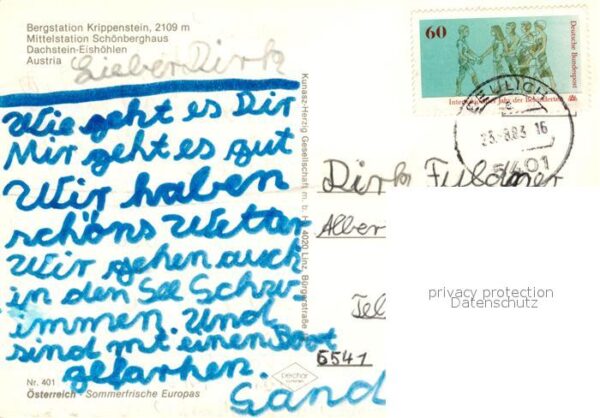 Bergstation Krippenstein, 2109 m
Mittelstation Schönberghaus
Dachstein-Eishöhlen
Austria
Lieber Dirk
Wie geht es Dir
Mir geht es gut
Wir haben
schöns Wetter
Wir gehen auch
in den See Schw-
immen. Und
sind mit einen Boot
gefarhen.
Sand
Nr. 401
Österreich - Sommerfrische Europas
Kunasz-Herzig Gesellschaft m. b. H. 4020 Linz, Bürgerstraße
60
Deutsche Bundespost
Internationales Jahr der Behinderten
23.-8.83 16
5401
Dirk Fuldner
Alber
privacy protection
Datenschutz
5541